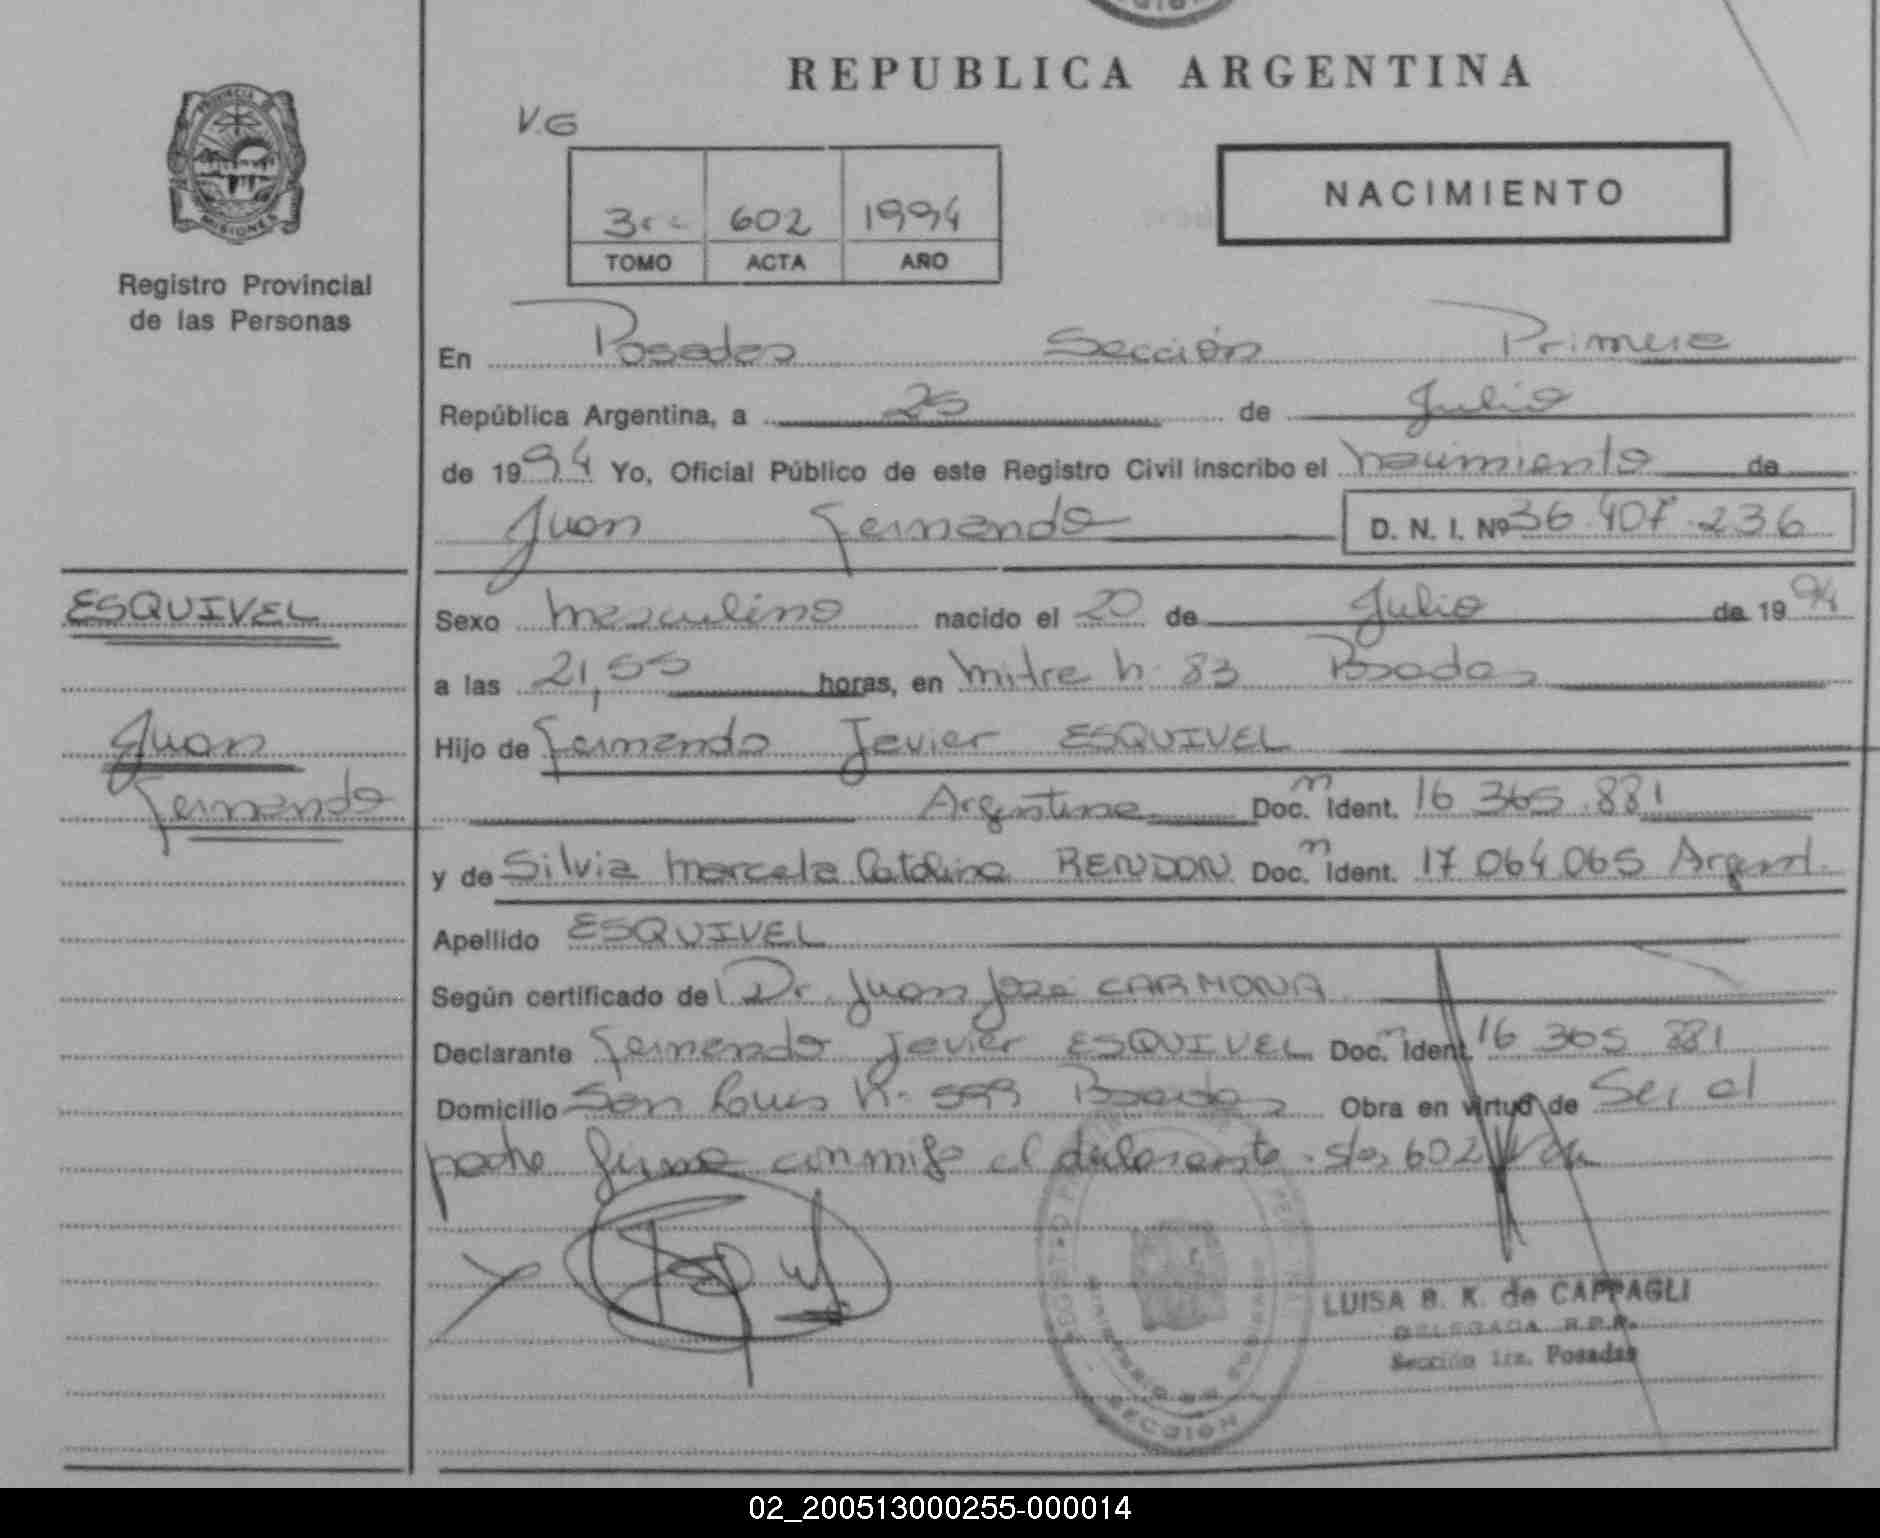 REPUBLICA ARGENTINA
PROVINCIA DE
MISIONES
Registro Provincial
de las Personas
V.G
NACIMIENTO
3ro 602 1994
TOMO ACTA AÑO
En Posadas Sección Primera
República Argentina, a 25 de Julio
de 1994 Yo, Oficial Público de este Registro Civil inscribo el nacimiento de
Juan Fernando D. N. I. Nº 36.407.236
ESQUIVEL
Juan
Fernando
Sexo masculino nacido el 20 de Julio de 1994
a las 21,55 horas, en mitre n. 83 Posadas
Hijo de Fernando Javier ESQUIVEL
Argentina Doc. m Ident. 16 365.881
y de Silvia Marcela Catalina RENDON Doc. m Ident. 17 064.065 Argent.
Apellido ESQUIVEL
Según certificado de Dr. Juan José CARMONA
Declarante Fernando Javier ESQUIVEL Doc. m Ident. 16 365 881
Domicilio San Luis n. 599 Posadas Obra en virtud de Ser el
padre firma conmigo el declarante. 602
LUISA B. K. de CAPPAGLI
DELEGADA R.P.P.
Sección 1ra. Posadas
MINISTERIO DE GOBIERNO
SECCION 1
02_200513000255-000014